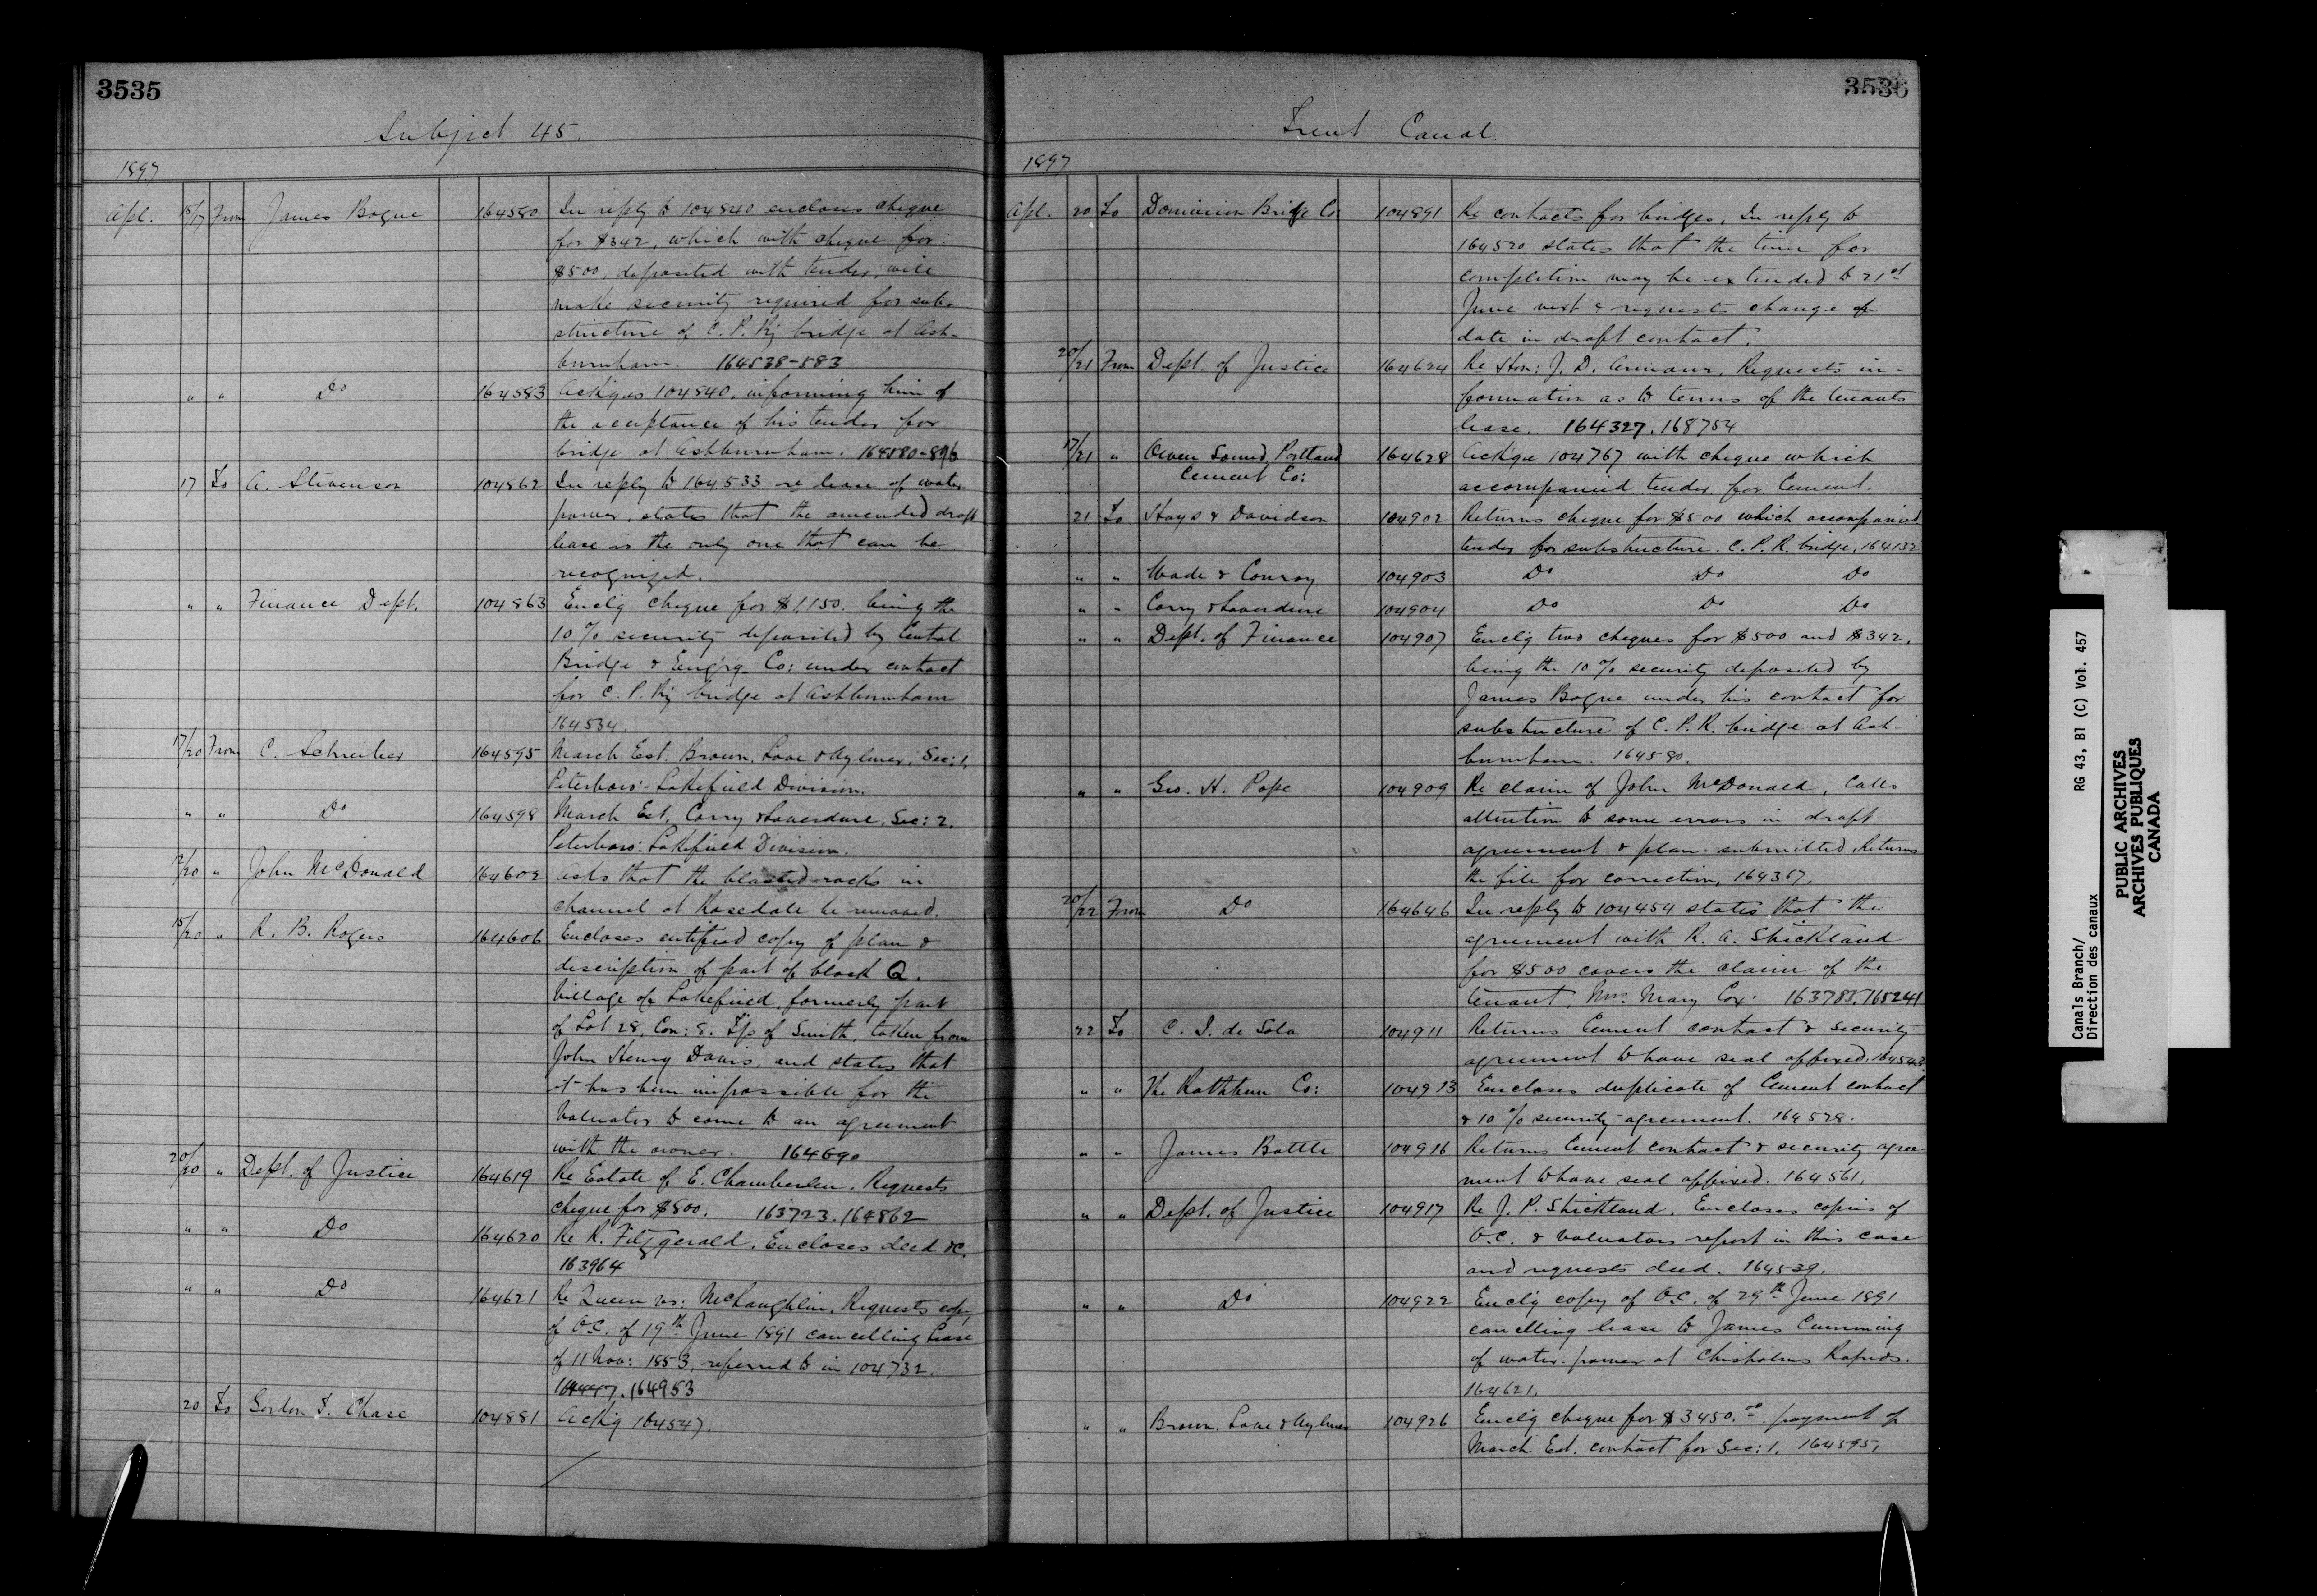 3535
Subject 45.
1897
Apl. 15/17 From James Bogue 164580 In reply to 104840 encloses cheque
for $342, which with cheque for
$500, deposited with tender, will
make security required for sub-
structure of C. P. Ry bridge at Ash-
burnham. 164538-583
" " Do 164583 Ackges 104840, informing him of
the acceptance of his tender for
bridge at Ashburnham.
17 To A. Stevenson 104862 In reply to 164533 re lease of water
power, states that the amended draft
lease is the only one that can be
recognized.
" " Finance Dept. 104863 Enclg cheque for $1,150. being the
10% security deposited by Central
Bridge & Eng'rg Co: under contract
for C. P. Ry bridge at Ashburnham
164534.
17/20 From C. Schreiber 164595 March Est. Brown, Love & Aylmer, Sec: 1,
Peterboro'-Lakefield Division.
" " Do 164598 March Est, Corry & Laverdure, Sec: 2.
Peterboro: Lakefield Division.
/20 " John McDonald 164602 Asks that the blasted rocks in
channel at Rosedale be removed.
15/20 " R. B. Rogers 164606 Encloses certified copy of plan &
description of part of block Q.
Village of Lakefield, formerly part
of Lot 28, Con: 8. T'p of Smith, taken from
John Henry Davis, and states that
it has been impossible for the
Valuator to come to an agreement
with the owner. 164690
20/20 " Dept. of Justice 164619 Re Estate of E. Chamberlen. Requests
cheque for $800. 163723. 164862
" " Do 164620 Re R. Fitzgerald. Encloses deed &c.
163964
" " Do 164621 Re Queen vs: McLaughlin. Requests copy
of O.C. of 19th June 1891 cancelling lease
of 11 Nov: 1853, referred to in 104732.
164447. 164953
20 To Gordon T. Chase 104881 Ackg 164547.
3536
Trent Canal
1897
Apl. 20 To Dominion Bridge Co: 104891 Re contracts for bridges. In reply to
164520 states that the time for
completion may be extended to 21st
June next & requests change of
date in draft contract.
20/21 From Dept. of Justice 164624 Re Hon: J. D. Armour, Requests in-
formation as to terms of the tenants
lease. 164327. 168754
17/21 " Owen Sound Portland 164628 Ack'ge 104767 with cheque which
Cement Co: accompanied tender for Cement.
21 To Hays & Davidson 104902 Returns cheque for $500 which accompanied
tender for substructure. C. P. R. bridge, 164132
" " Wade & Conroy 104903 Do Do Do
" " Corry & Laverdure 104904 Do Do Do
" " Dept. of Finance 104907 Enclg two cheques for $500 and $342,
being the 10% security deposited by
James Bogue under his contract for
substructure of C. P. R. bridge at Ash-
burnham. 164580.
" " Geo. H. Pope 104909 Re claim of John McDonald, Calls
attention to some errors in draft
agreement & plan submitted, Returns
the file for correction, 164367.
20/22 From Do 164646 In reply to 104454 states that the
agreement with R. A. Strickland
for $500 covers the claim of the
tenant, Mrs. Mary Cox. 163783. 165241
22 To C. I. de Sola 104911 Returns Cement contract & security
agreement to have seal affixed. 164543
" " The Rathbun Co: 104913 Encloses duplicate of Cement contract
& 10% security agreement. 164528.
" " James Battle 104916 Returns Cement contract & security agree-
ment to have seal affixed. 164561.
" " Dept. of Justice 104917 Re J. P. Strickland. Encloses copies of
O.C. & Valuators report in this case
and requests deed. 164539.
" " Do 104922 Enclg copy of O.C. of 29th June 1891
cancelling lease to James Cumming
of water-power at Chisholms Rapids.
164621.
" " Brown, Love & Aylmer 104926 Enclg cheque for $3450.00 payment of
March Est. contract for Sec: 1. 164595,
Canals Branch/ RG 43, B1 (C) Vol. 457
Direction des canaux
PUBLIC ARCHIVES
ARCHIVES PUBLIQUES
CANADA